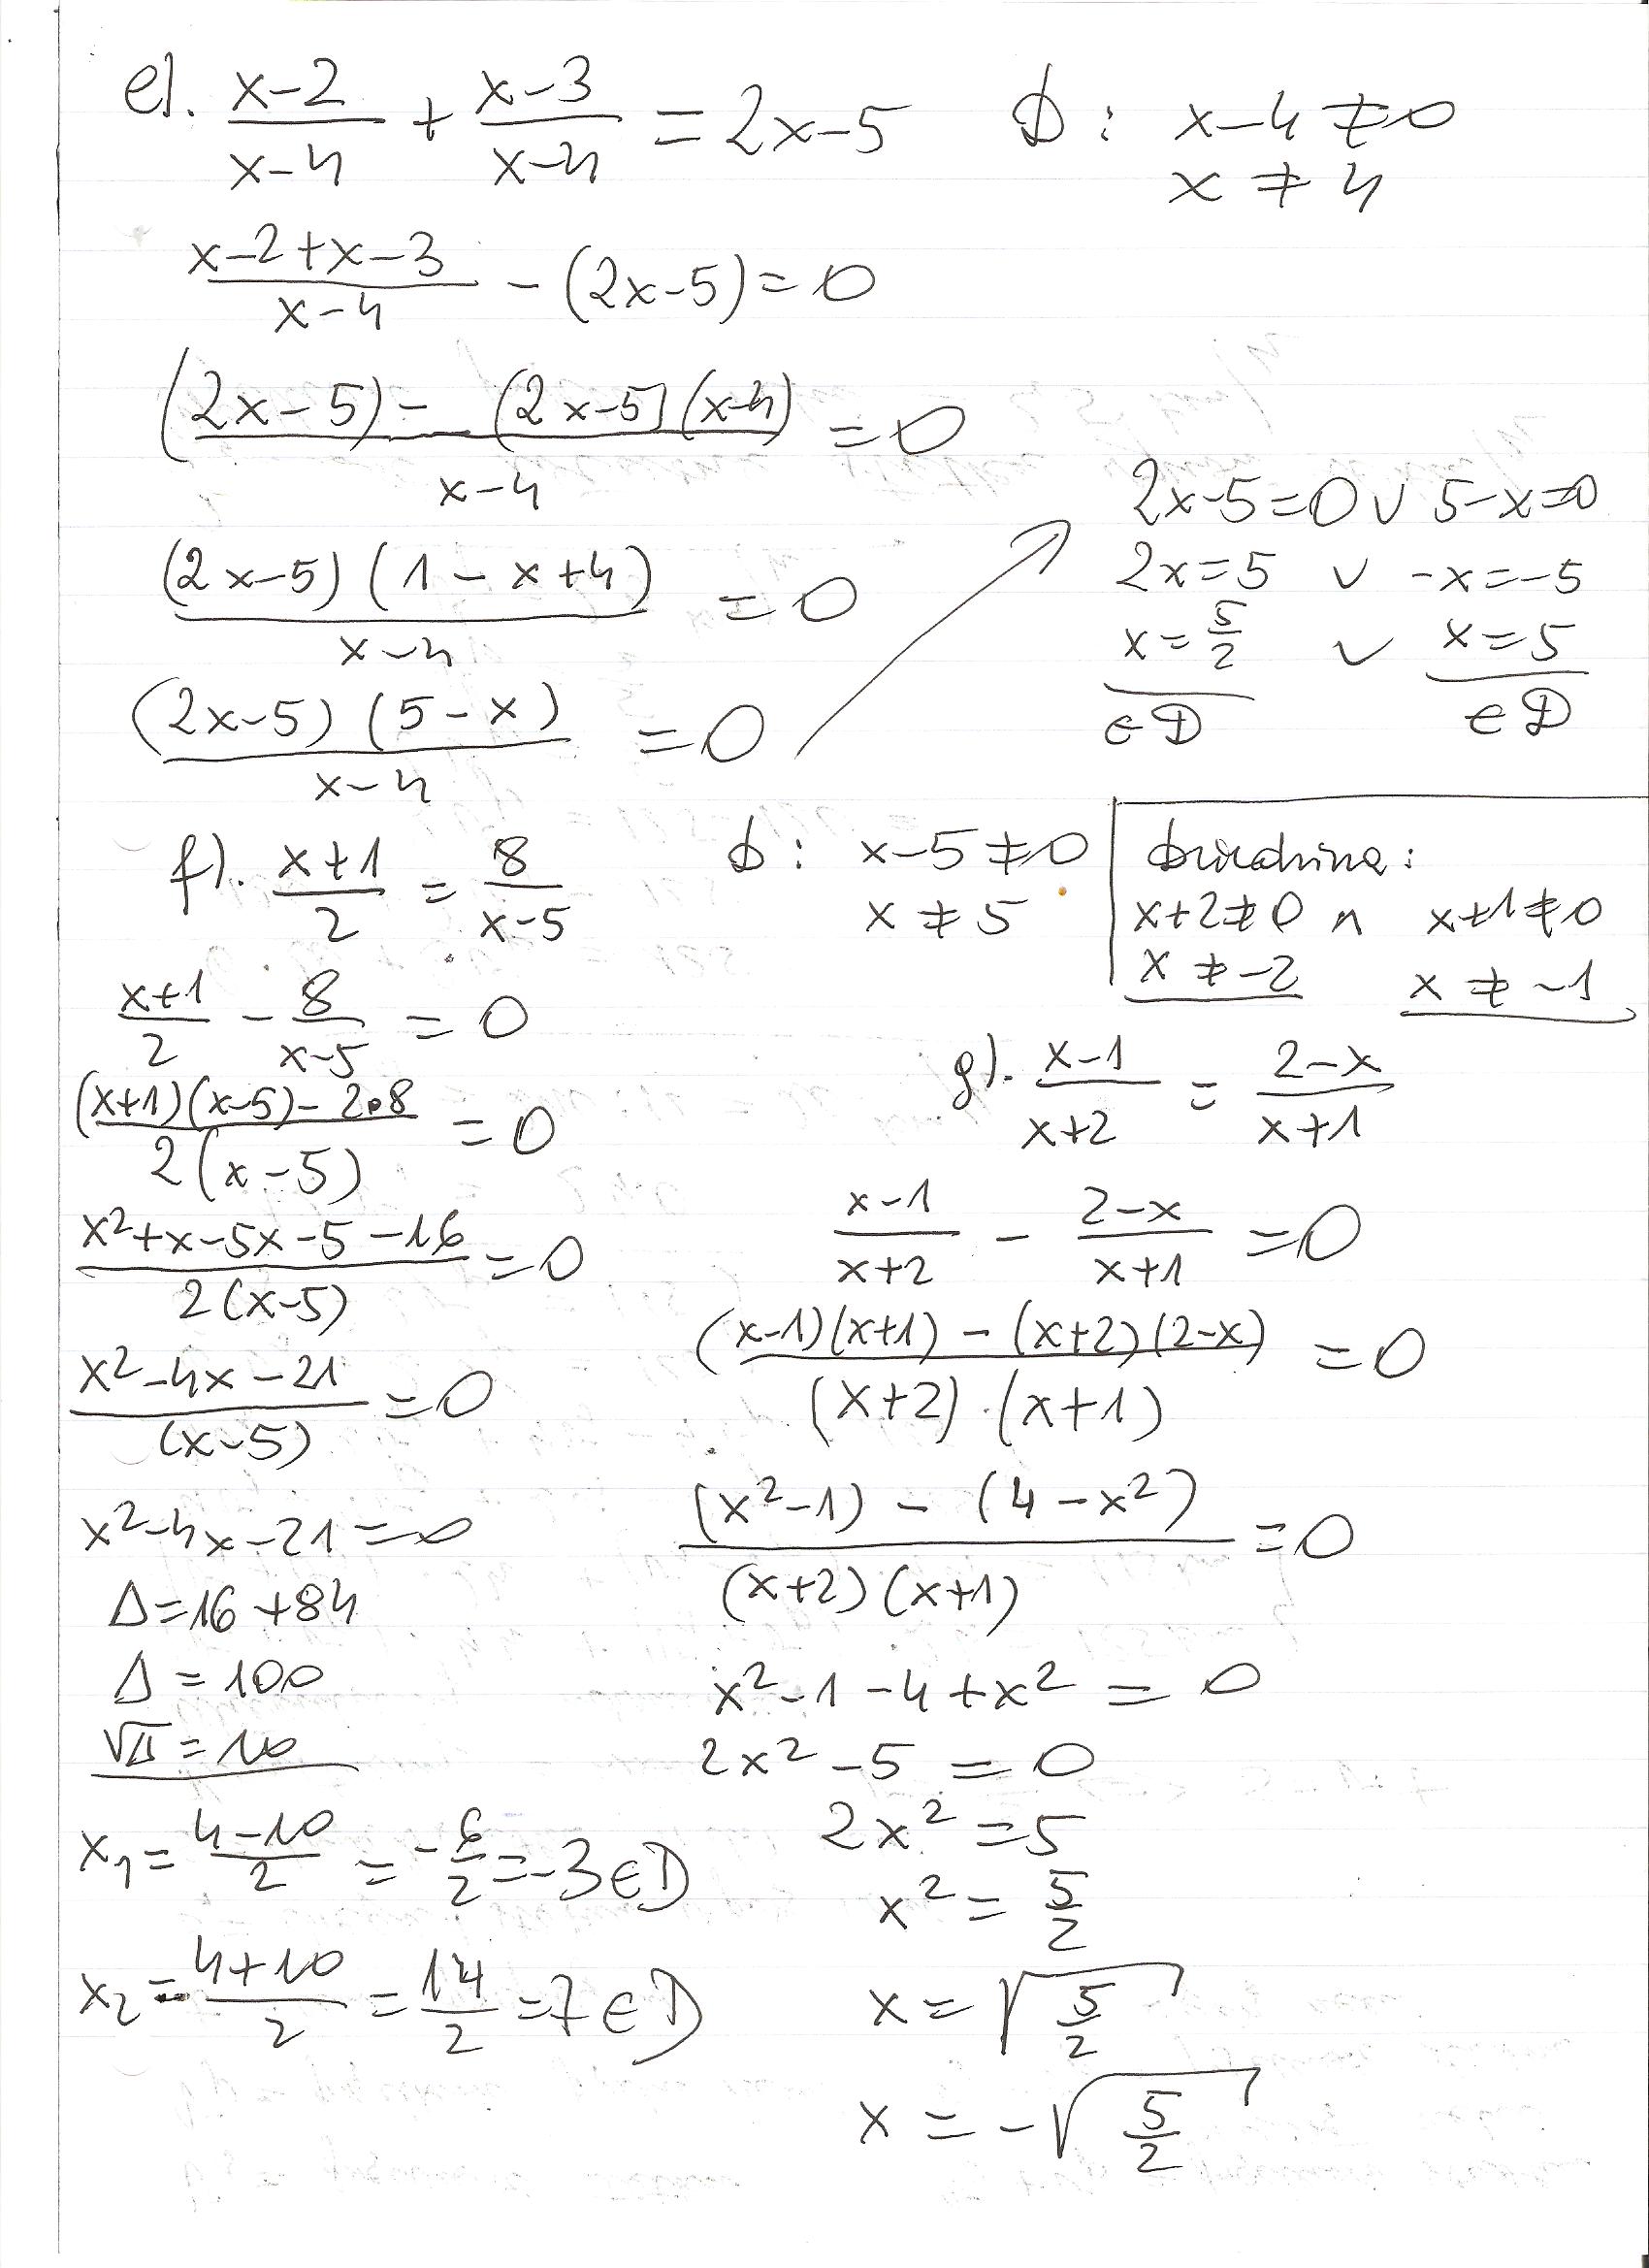 e). (x-2)/(x-4) + (x-3)/(x-4) = 2x-5   D: x-4≠0
x≠4
(x-2+x-3)/(x-4) - (2x-5)=0
((2x-5)- (2x-5)(x-4))/(x-4) =0
((2x-5)(1-x+4))/(x-4) =0
((2x-5)(5-x))/(x-4) =0
2x-5=0 ∨ 5-x=0
2x=5 ∨ -x=-5
x=5/2 ∨ x=5
∈D ∈D
f). (x+1)/2 = 8/(x-5)   D: x-5≠0
x≠5
(x+1)/2 - 8/(x-5) = 0
((x+1)(x-5)-2•8)/(2(x-5)) =0
(x²+x-5x-5-16)/(2(x-5)) =0
(x²-4x-21)/((x-5)) =0
x²-4x-21=0
Δ=16+84
Δ=100
√Δ=10
x₁= (4-10)/2 = -6/2 =-3∈D
x₂= (4+10)/2 = 14/2 =7∈D
Dziedzina:
x+2≠0 ∧ x+1≠0
x≠-2 x≠-1
g). (x-1)/(x+2) = (2-x)/(x+1)
(x-1)/(x+2) - (2-x)/(x+1) =0
((x-1)(x+1)-(x+2)(2-x))/((x+2)·(x+1)) =0
((x²-1)-(4-x²))/((x+2)(x+1)) =0
x²-1-4+x²=0
2x²-5=0
2x²=5
x²=5/2
x=√(5/2)
x=-√(5/2)